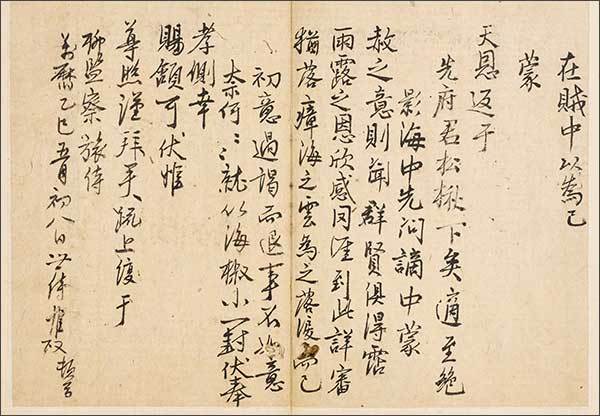 在賊中以爲已
蒙
天恩返于
先府君松楸下矣適至絶
影海中先問謫中蒙
赦之意則群賢俱得霑
雨露之恩欣感罔涯到此詳審
猶落瘴海之雲爲之落淚而已
初意過謁而退事不如意
柰何〻〻就以海椒小一封伏奉
孝側幸
賜領可伏惟
尊照謹拜手疏上復于
柳監察旅侍
萬曆乙巳五月初八日侍